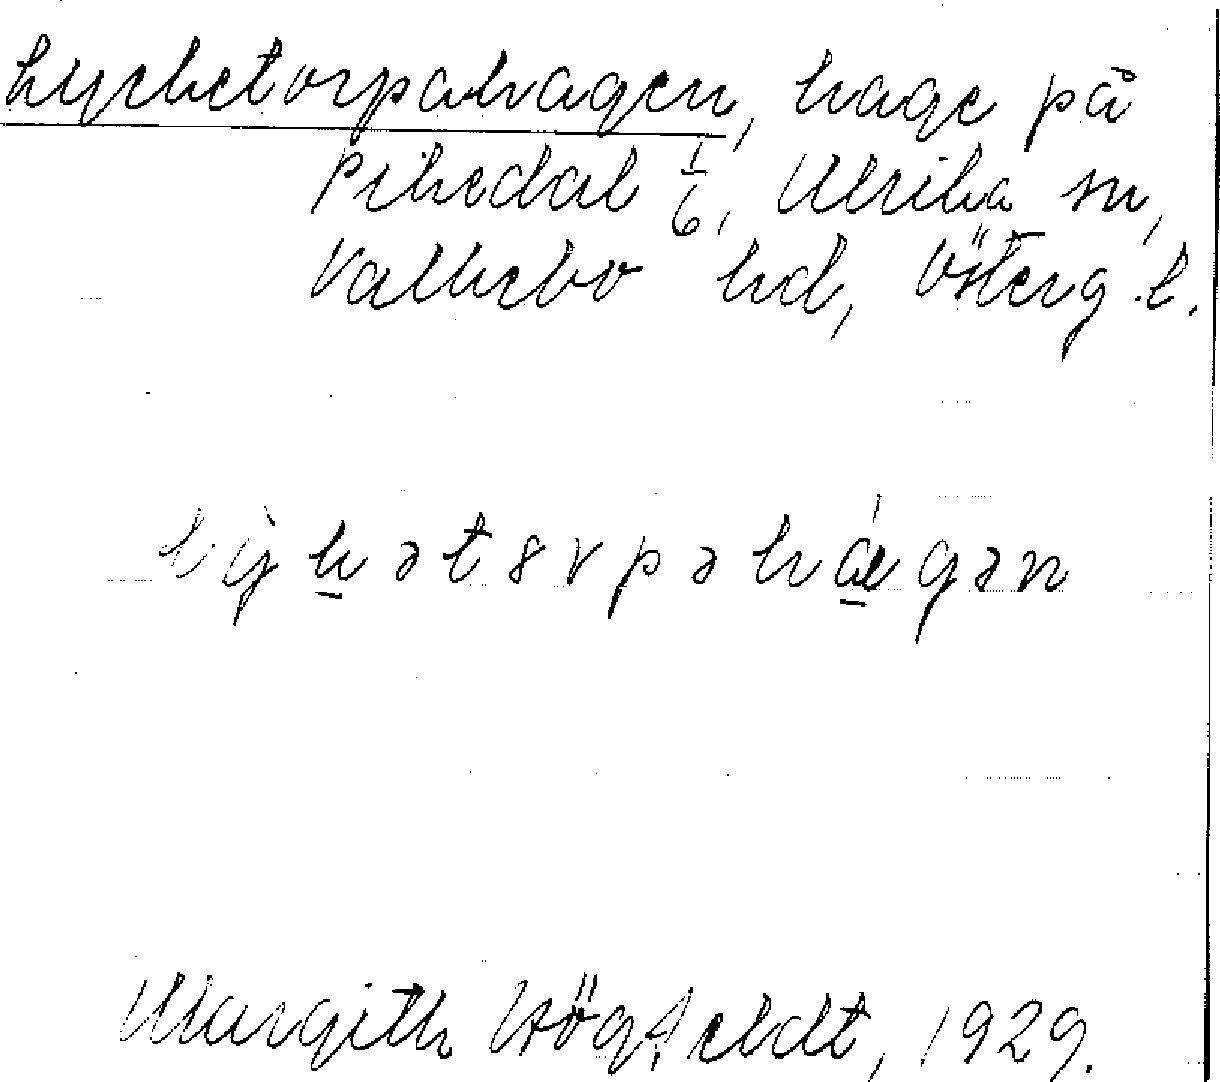 Lycketorpahagen, hage på
Rikedal 1/6, Ulrika sn,
Valkebo hd, Österg. l.
lỳk̲ətɤrpəhá̲gən
Margith Högfeldt, 1929.